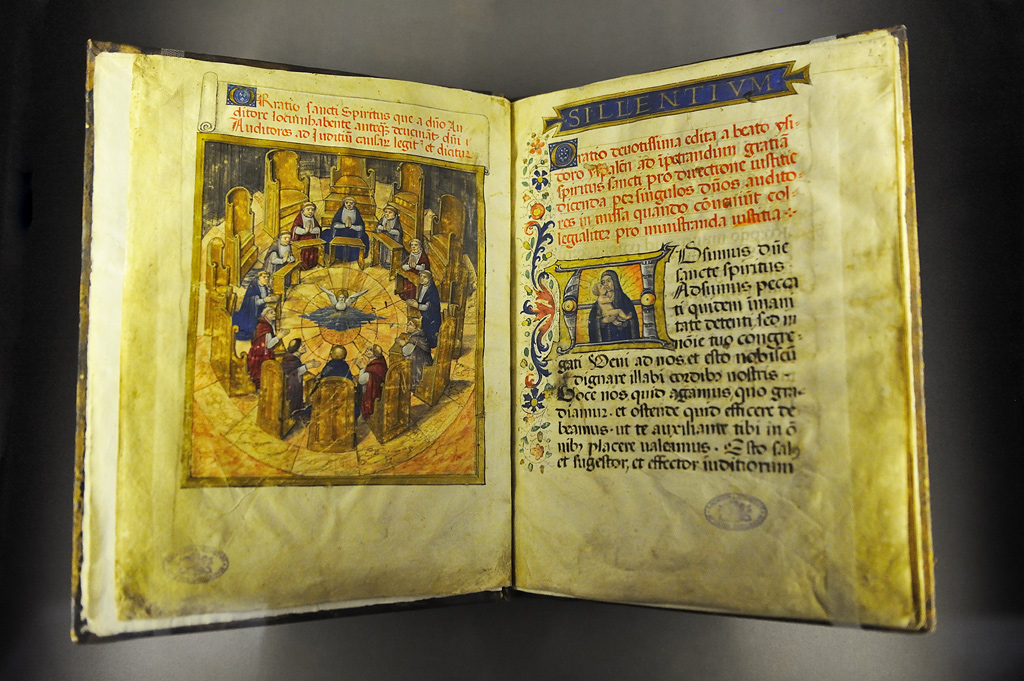 Orratio sancti Spiritus que a dño Au
ditore locumhabente antiqȝ veniant dñi
Auditores ad Juditiũ causar legitʳ et dicitur
SILLENTIVM
Oratio devotissima edita a beato ysi
doro yspaleñ ad ipetrandum gratiã
spiritus sancti pro directione iustitie
dicenda per singulos dños audito-
res in missa quando cõveniũt col-
legialiter pro ministranda iustitia
ADsumus dñe
sancte spiritus
Adsumus pecca
ti quidem iman
tate detenti sed in
noĩe tuo congre-
gati Veni ad nos et esto nobiscũ
dignare illabi cordibꝰ nostris
Doce nos quid agamus quo gra-
diamur · et ostende quid efficere de
beamus · ut te auxiliante tibi in õ
nibꝰ placere valeamus · Esto salꝰ
et sugestor, et effector iuditiorum